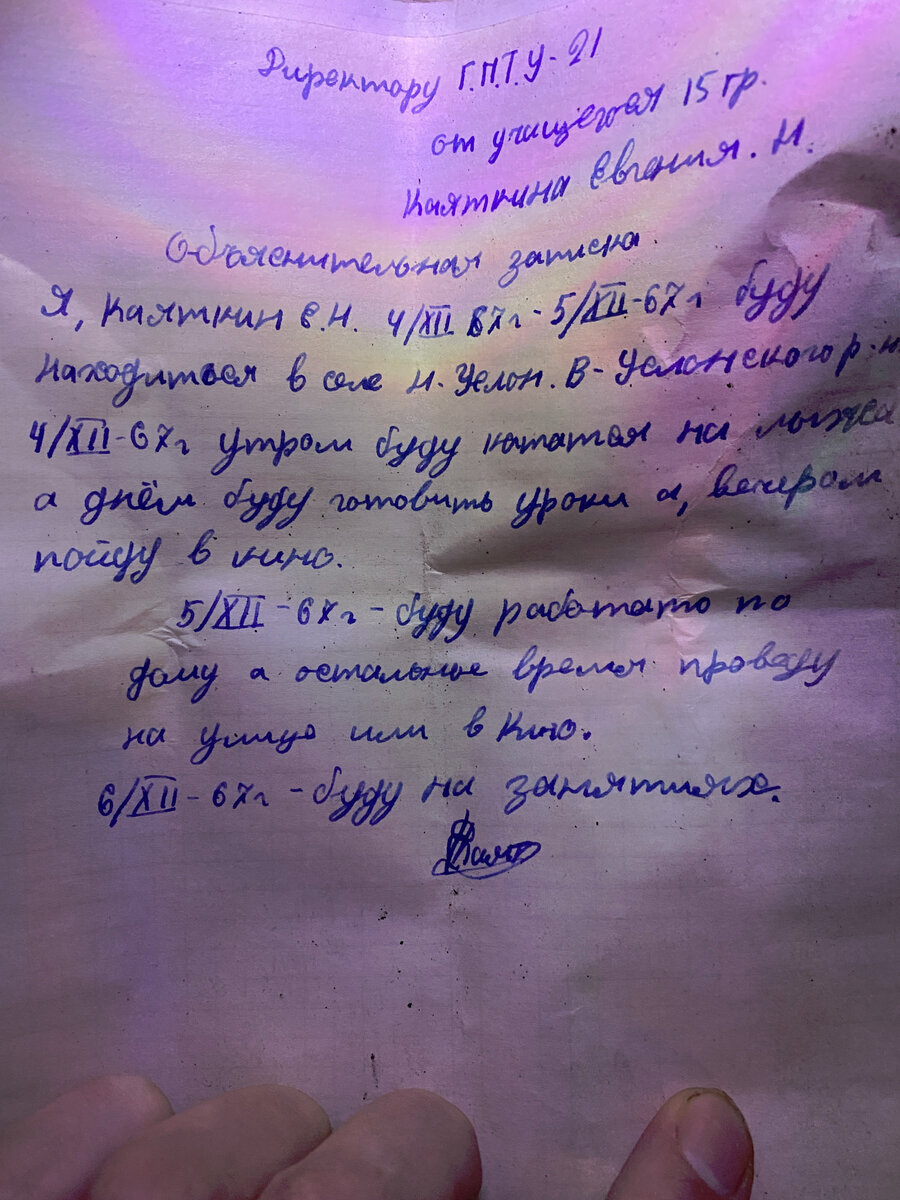 Директору Г.П.Т.У-21
от учащегося 15 гр.
Каяткина Евгения. Н.
Объяснительная записка.
Я, Каяткин Е.Н. 4/XII 67г - 5/XII-67г буду
находиться в селе Н-Услон. В-Услонского р-н
4/XII-67г утром буду кататся на лыжа
а днём буду готовить уроки а, вечером
пойду в кино.
5/XII-67г - буду работать по
дому а остальное время проведу
на улице или в кино.
6/XII-67г - буду на занятиях.